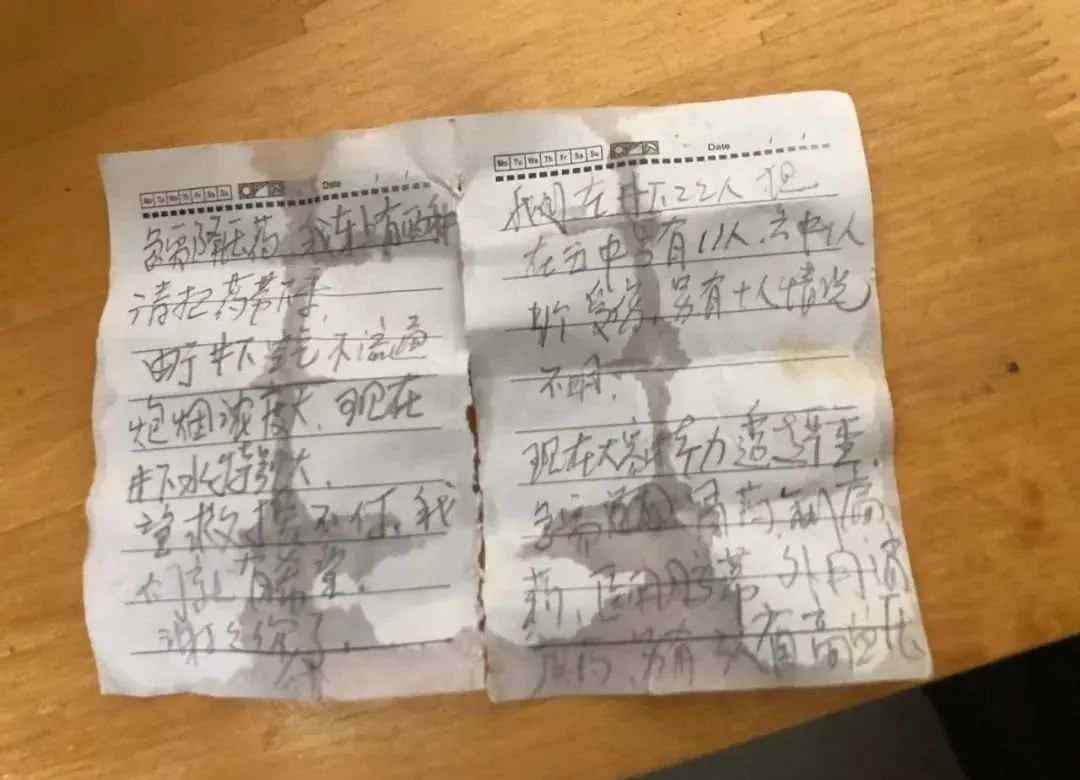 Mo Tu We Th Fr Sa Su Date
我们在井下22人 但
在五中号有11人,六中1人
受伤,另有十人情况
不明,
现在大家体力透支严重,
急需 胃药、制痛
药,医用胶带 外用消
炎药,另有 人有高血压
Mo Tu We Th Fr Sa Su Date
急需降压药 我车上有两种
请把药带下来,
由于井下空气不流通
炮烟浓度大,现在
井下水特别大,
望救援不停,我
们就有希望,
谢谢你们